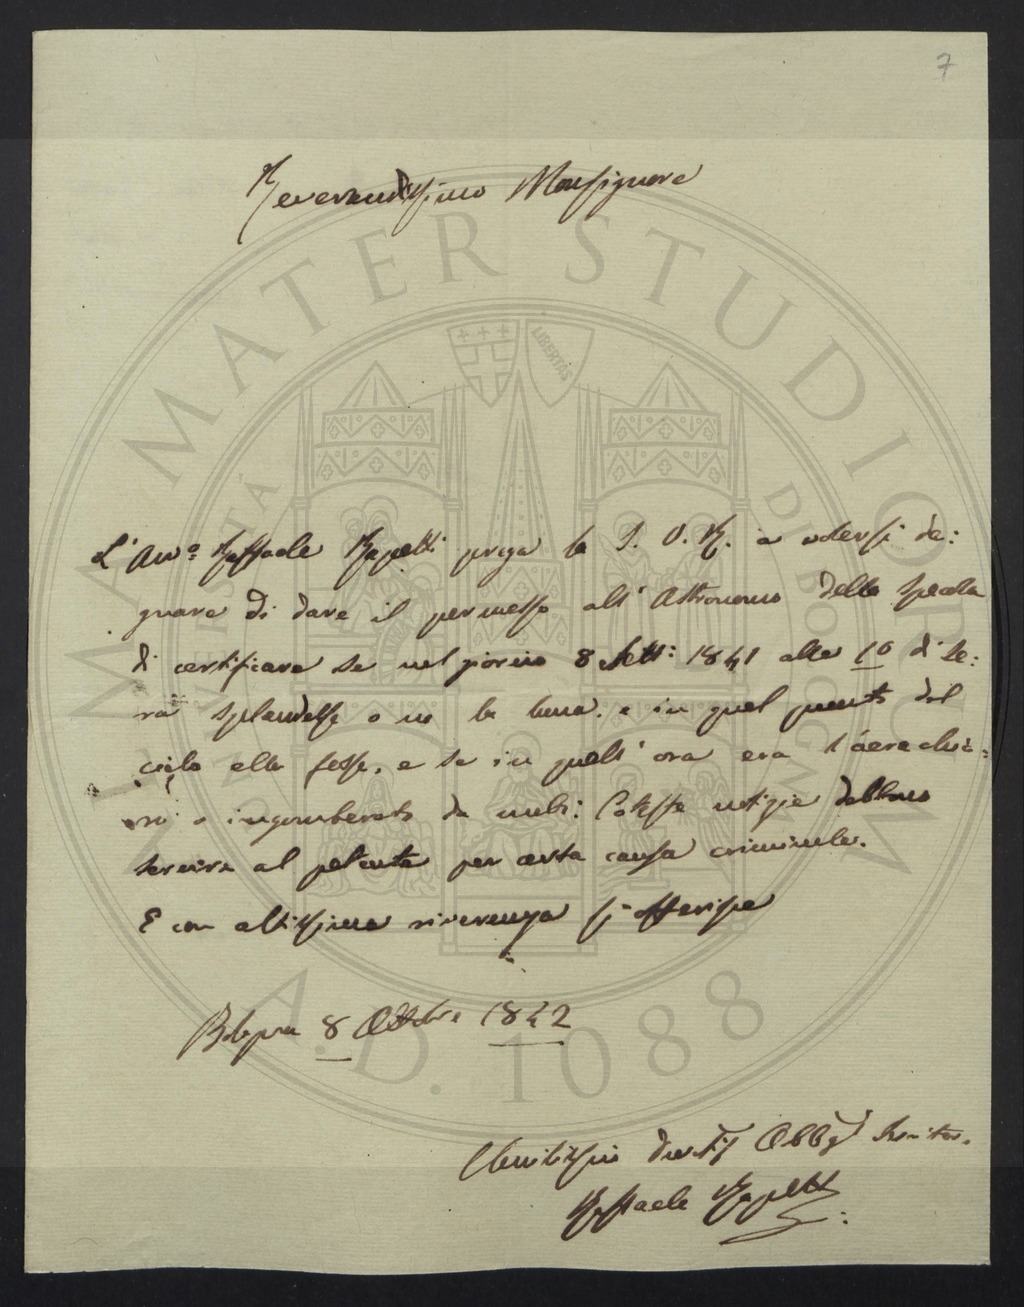 7
Reverendissimo Monsignore
L'Avv.o Raffaele Rapetti prega la S. V. R. a volersi de:
gnare di dare il permesso all'Astronomo della Specola
di certificare se nel giorno 8 Sett: 1841 alle 10 di se:
ra splendesse o no la luna. e in qual punto del
cielo ella fosse, e se in quell'ora era l'aere chia:
ro o ingomberato da nubi: Coteste notizie debbono
servire al petente per certa causa criminale.
E con altissima riverenza si offerisce
Bologna 8 Ottobre 1842
Umilissimo Devot. Obbg. Servitor.
Raffaele Rapetti
ALMA MATER STUDIORUM
UNIVERSITÀ DI BOLOGNA
LIBERTAS
A.D. 1088